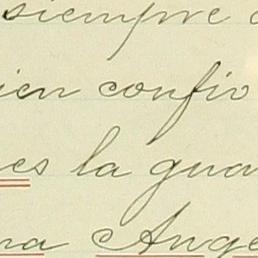 siempre
ien confio
es la gua
na Ange